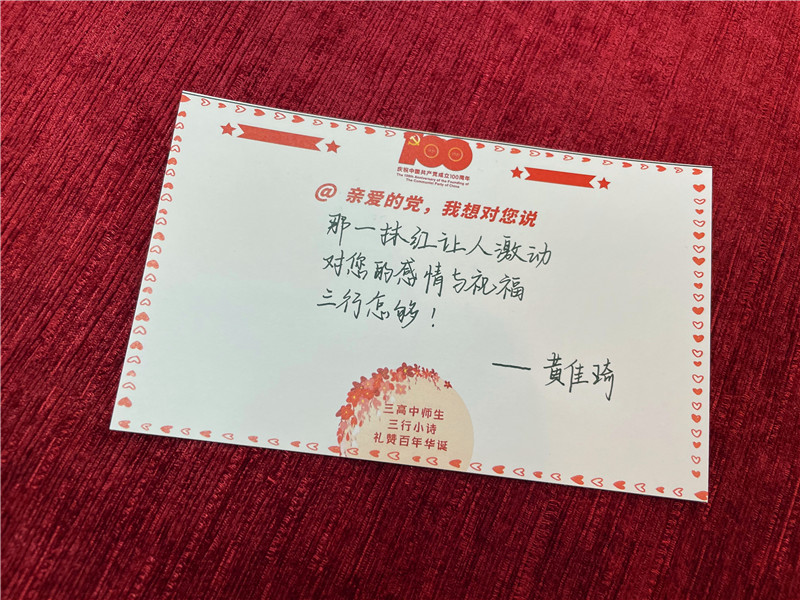 100
庆祝中国共产党成立100周年
The 100th Anniversary of the Founding of
The Communist Party of China
@ 亲爱的党，我想对您说
那一抹红让人激动
对您的感情与祝福
三行怎够！
— 黄佳琦
三高中师生
三行小诗
礼赞百年华诞